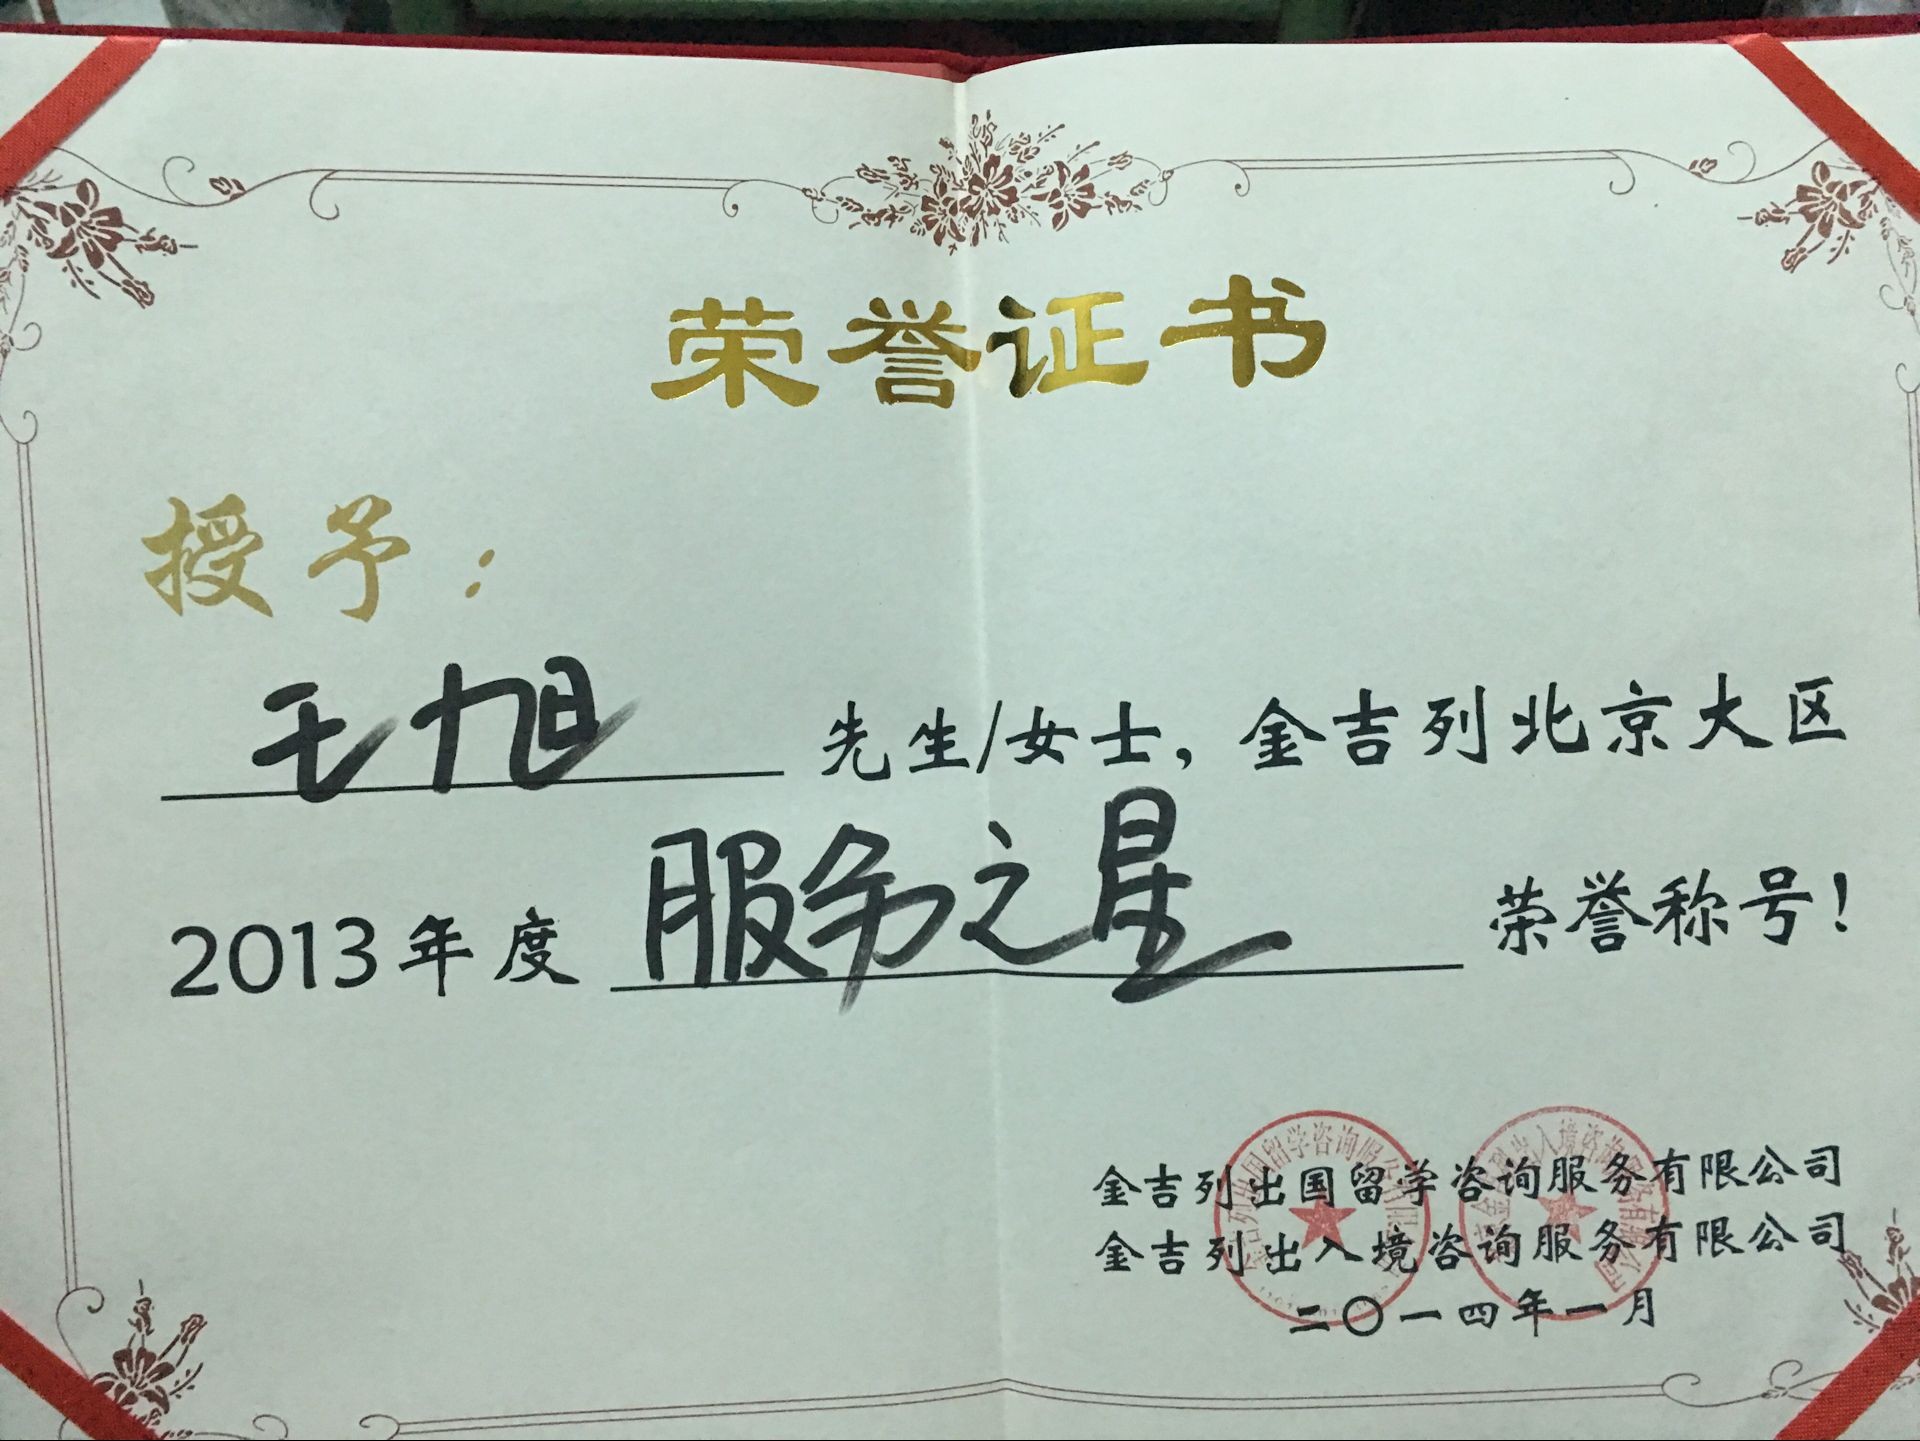 荣誉证书
授予：
王旭 先生/女士，金吉列北京大区
2013年度 服务之星 荣誉称号！
金吉列出国留学咨询服务有限公司
金吉列出入境咨询服务有限公司
二〇一四年一月